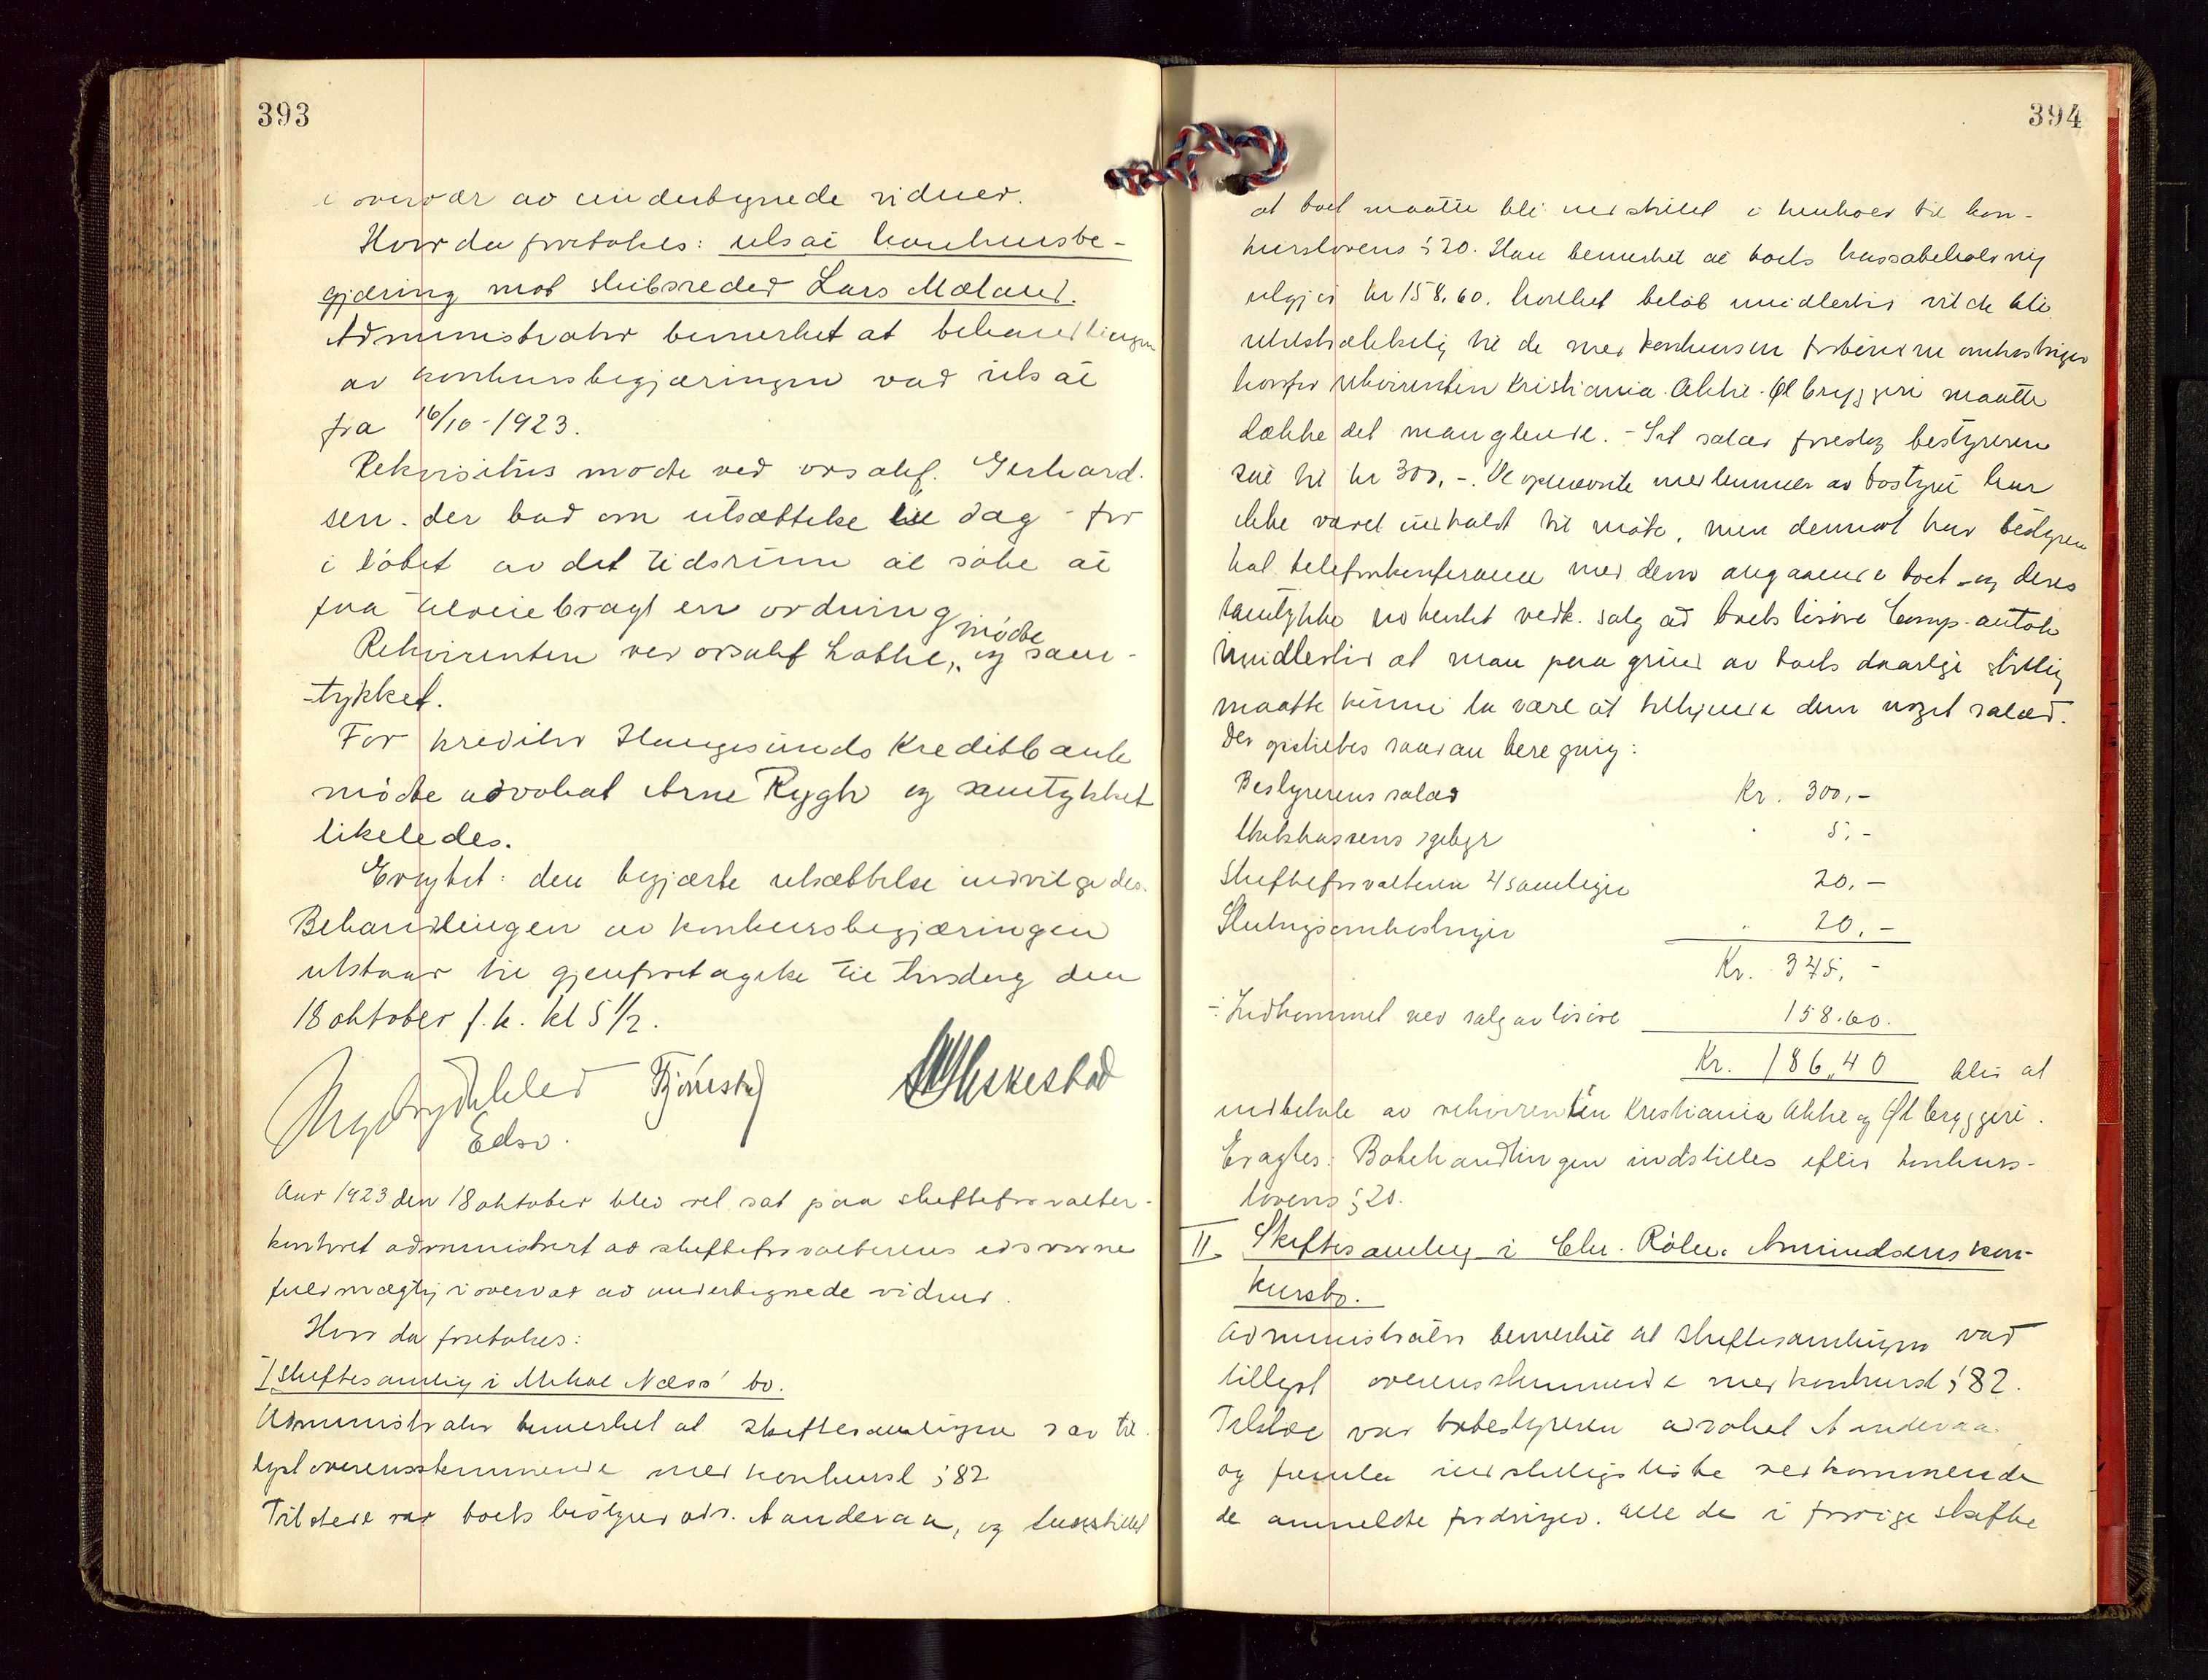 393
i overvær av undertegnede vidner.
Hvor da foretokes: utsat konkursbe-
gjæring mot skibsreder Lars Mæland.
Administrator bemerket at behandlingen
av konkursbegjæringen var utsat
fra 16/10-1923.
Rekvisitus møtte ved orsakf. Gerhard-
sen. der bad om utsættelse til dag for
i løbet av det tidsrum at søke at
faa tilveiebragt en ordning
Rekvirenten ved orsakf Løthe, møtte og sam-
tykket.
For kreditor Haugesunds Kreditbank
møtte advokat Arne Rygh og samtykket
likeledes.
Eragtet: den begjærte utsættelse indvilgedes.
Behandlingen av konkursbegjæringen
utstaar til gjenforetagelse til torsdag den
18 oktober f.k. kl 5 1/2.
Edsv.
Aar 1923 den 18 oktober blev ret sat paa skifteforvalter-
kontoret administrert av skifteforvalterens edsvorne
fuldmægtig i overvær av undertegnede vidner.
Hvor da foretokes:
I Skiftesamling i Mikal Næss' bo.
Administrator bemerket at skiftesamlingen var til-
lyst overensstemmende med konkursl § 82
Tilstede var boets bestyrer adv. Aanderaa, og
394
at boet maatte bli indstillet i henhold til kon-
kurslovens § 20. Han bemerket at boets kassabeholdning
utgjør kr 158,60. hvilket beløb imidlertid vilde bli
utilstrækkelig til de med konkursen forbundne omkostninger
hvorfor rekvirenten Kristiania Aktie-Ølbryggeri maatte
dække det manglende. - Sit salær foreslog bestyreren
sat til kr 300,-. De opnævnte medlemmer av bostyret har
ikke været indkaldt til møte, men derimot har bestyreren
hat telefonkonferanse med dem angaaende boet og deres
samtykke indhentet vedk. salg av boets løsøre
imidlertid at man paa grund av boets daarlige stilling
maatte kunne la være at tilkjende dem noget salær.
Der opstilles saadan beregning:
Bestyrerens salær Kr. 300,-
gebyr 5,-
Skifteforvalteren 4 samlinger 20,-
Slutningsomkostninger 20,-
Kr. 345,-
÷ Indkommet ved salg av løsøre 158.60.
Kr. 186,40 blir at
indbetale av rekvirenten Kristiania Aktie og Ølbryggeri.
Eragtes: Bobehandlingen indstilles efter konkurs-
lovens § 20.
II. Skiftesamling i Chr. Amundsens kon-
kursbo.
Administrator bemerket at skiftesamlingen var
tillyst overensstemmende med konkursl § 82.
Tilstede var bobestyreren advokat Aanderaa
og fremla indstillingsliste vedkommende
de anmeldte fordringer. Alle de i forrige skifte